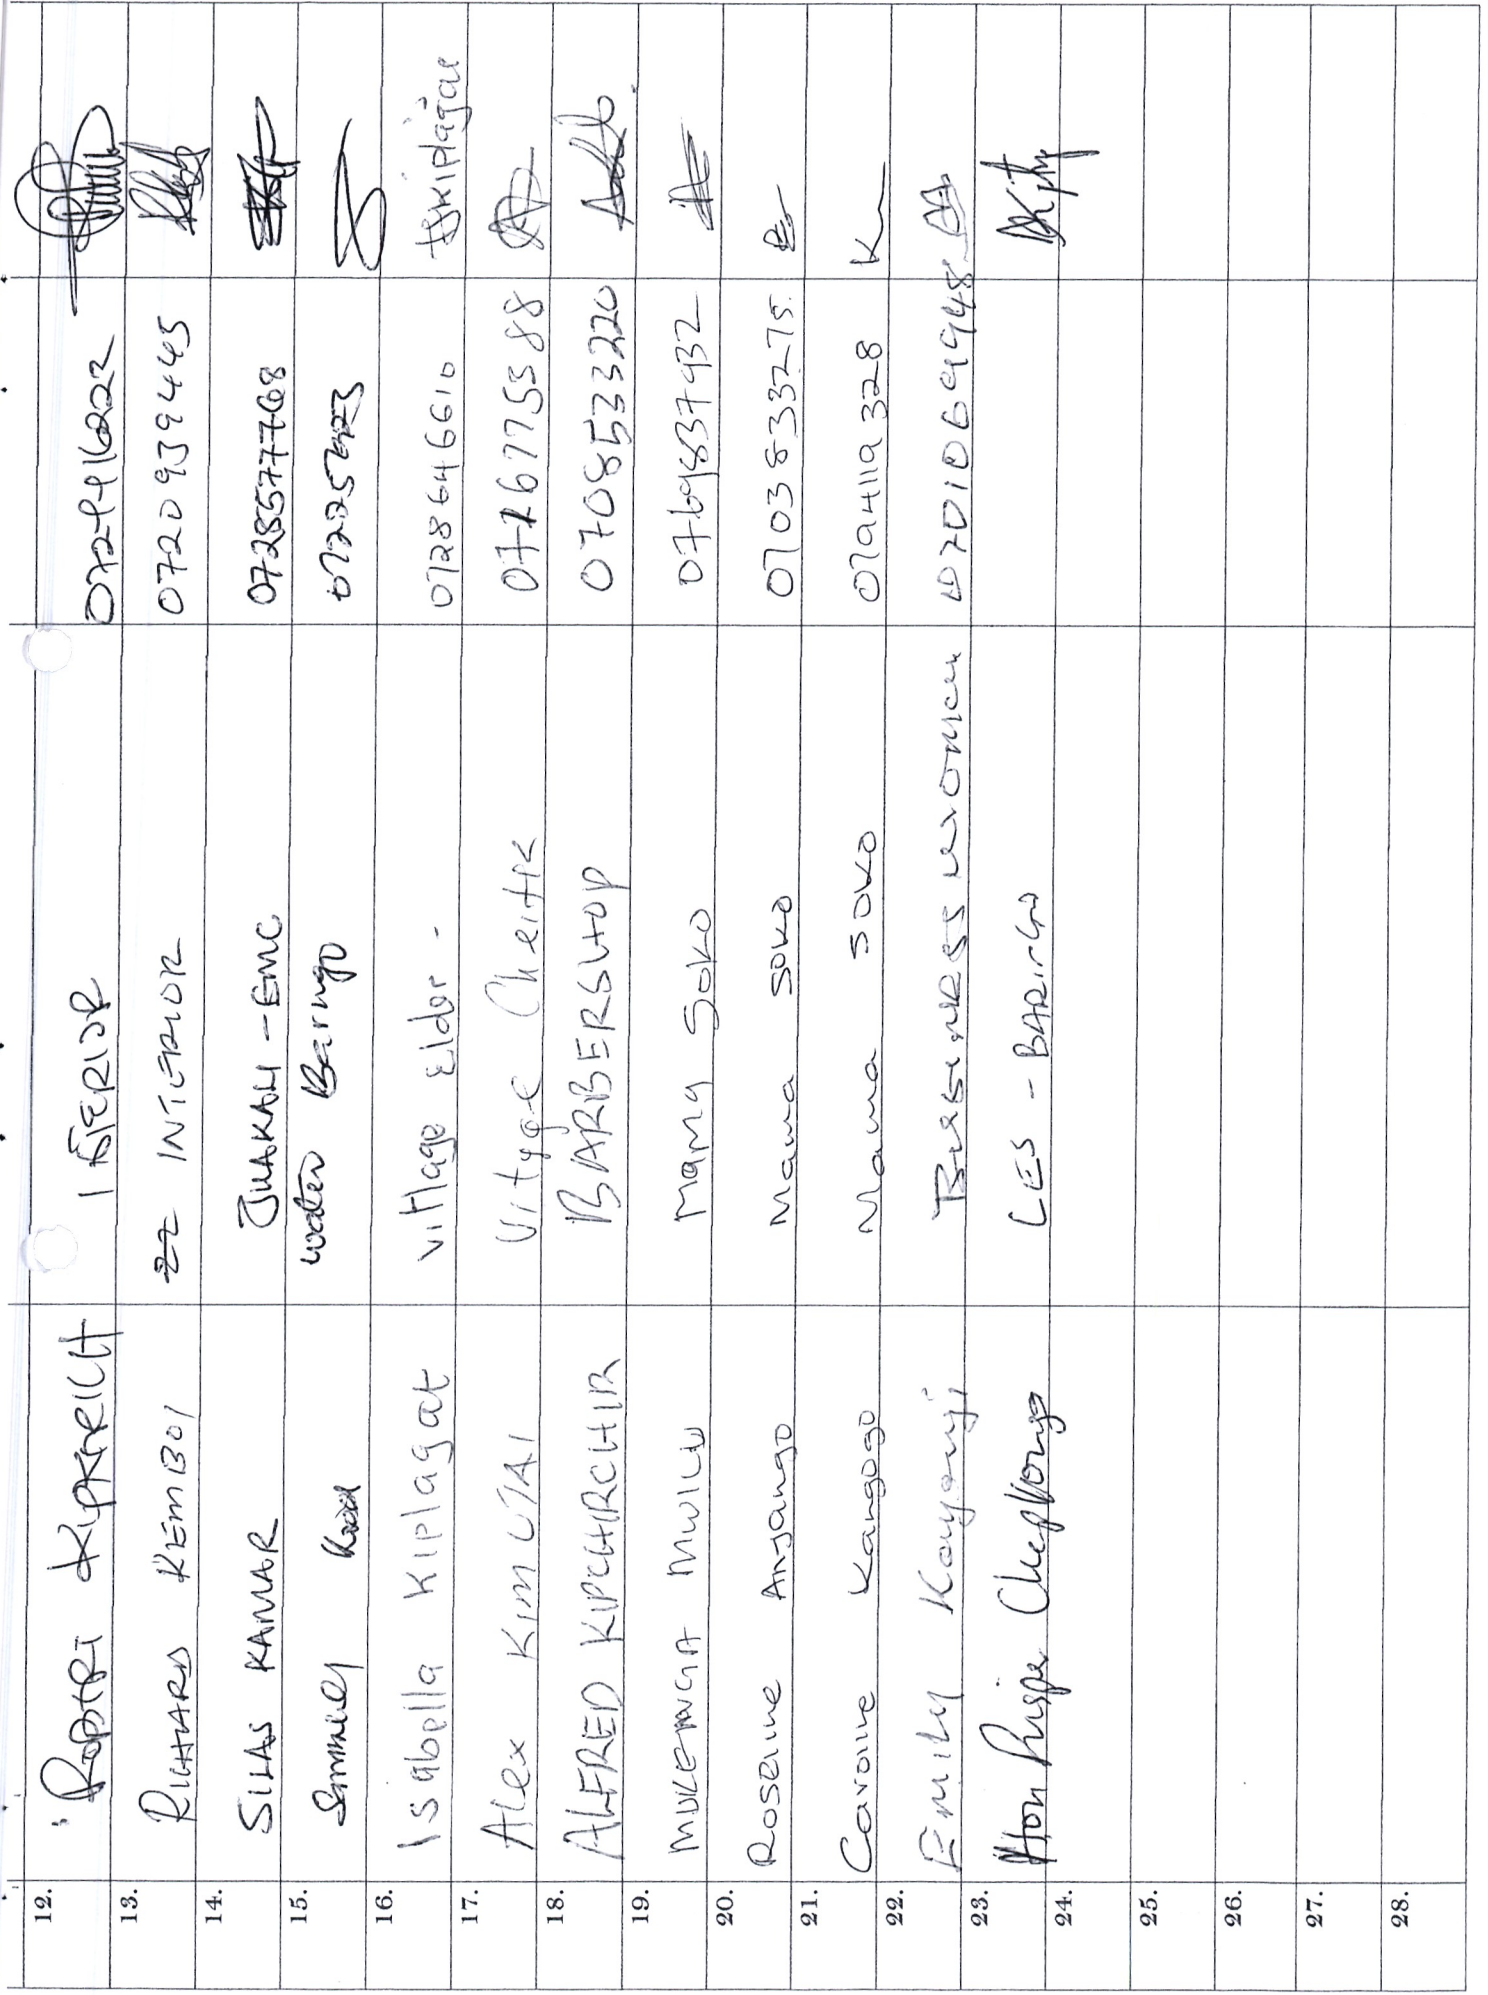 12. ROBERT KIPKARICH INTERIOR 0729416222
13. RICHARD KEMBOI INTERIOR 0720939445
14. SILAS KAMAR JUAKALI-EMC 0728577768
15. Sammey Water Baringo
16. Isabella Kiplagat Village Elder - 0728646610 Kiplagat
17. Alex KIMUTAI 0726775588
18. ALFRED KIPCHIRCHIR BARBERSHOP 0708533220
19. MWILU Mama Soko 0769837932
20. Roseline Anjango Mama soko 0703833275.
21. Caroline Kangogo Mama soko 0794119328
22. Emily Business women 0701069948
23. Hon Chepkonga CES - BARINGO
24.
25.
26.
27.
28.